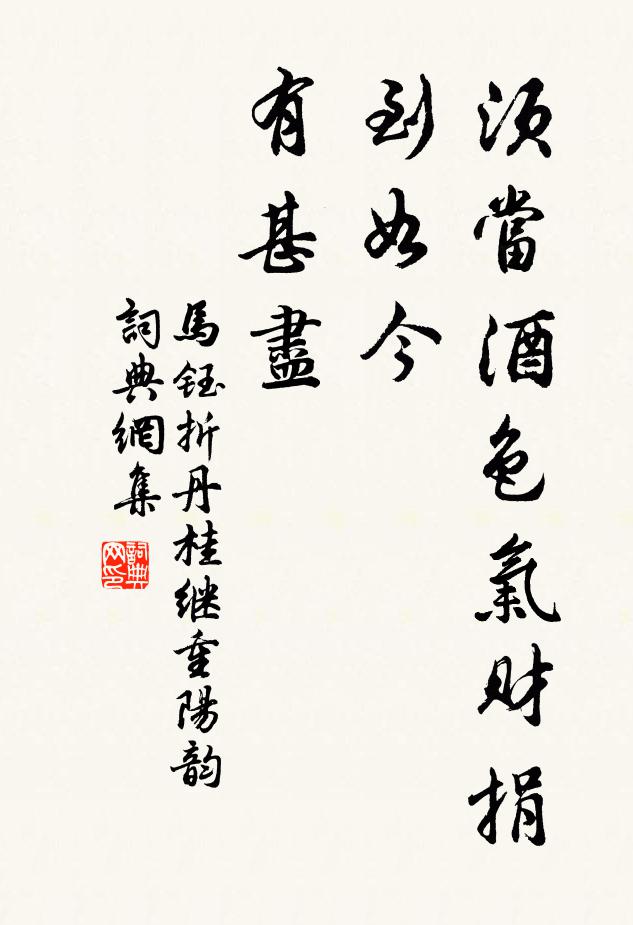 須當酒色氣財捐
到如今
有甚盡
馬鈺折丹桂继重陽韵
詞典網集
詞典网印